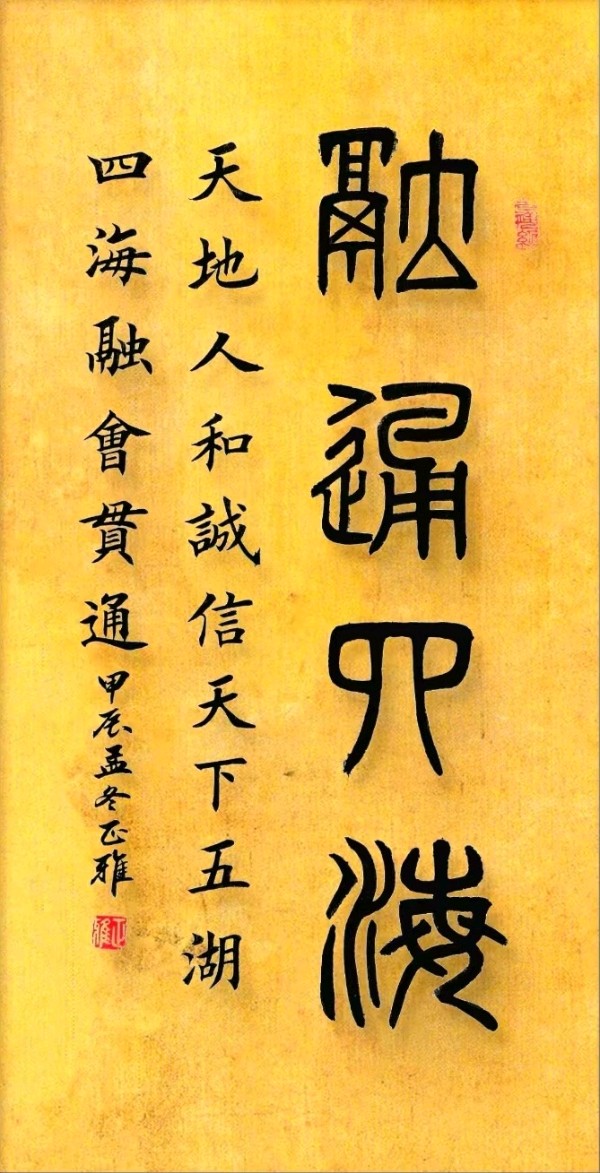 融通四海
天地人和誠信天下五湖
四海融會貫通甲辰孟冬正雅
正雅